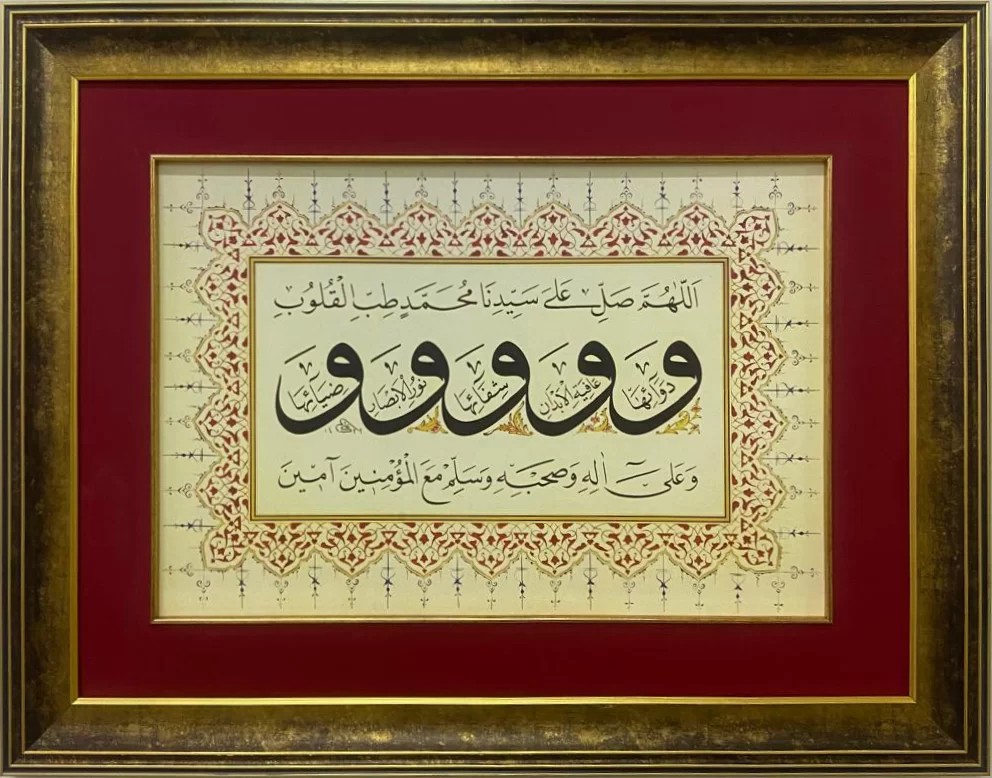 اَللّٰهُمَّ صَلِّ عَلَى سَيِّدِنَا مُحَمَّدٍ طِبِّ الْقُلُوبِ
وَدَوَائِهَا وَعَافِيَةِ الْاَبْدَانِ وَشِفَائِهَا وَنُورِ الْاَبْصَارِ وَضِيَائِهَا
وَعَلَىٓ اٰلِهِ وَصَحْبِهِ وَسَلِّمْ مَعَ الْمُؤْمِنِينَ آمِّينَ